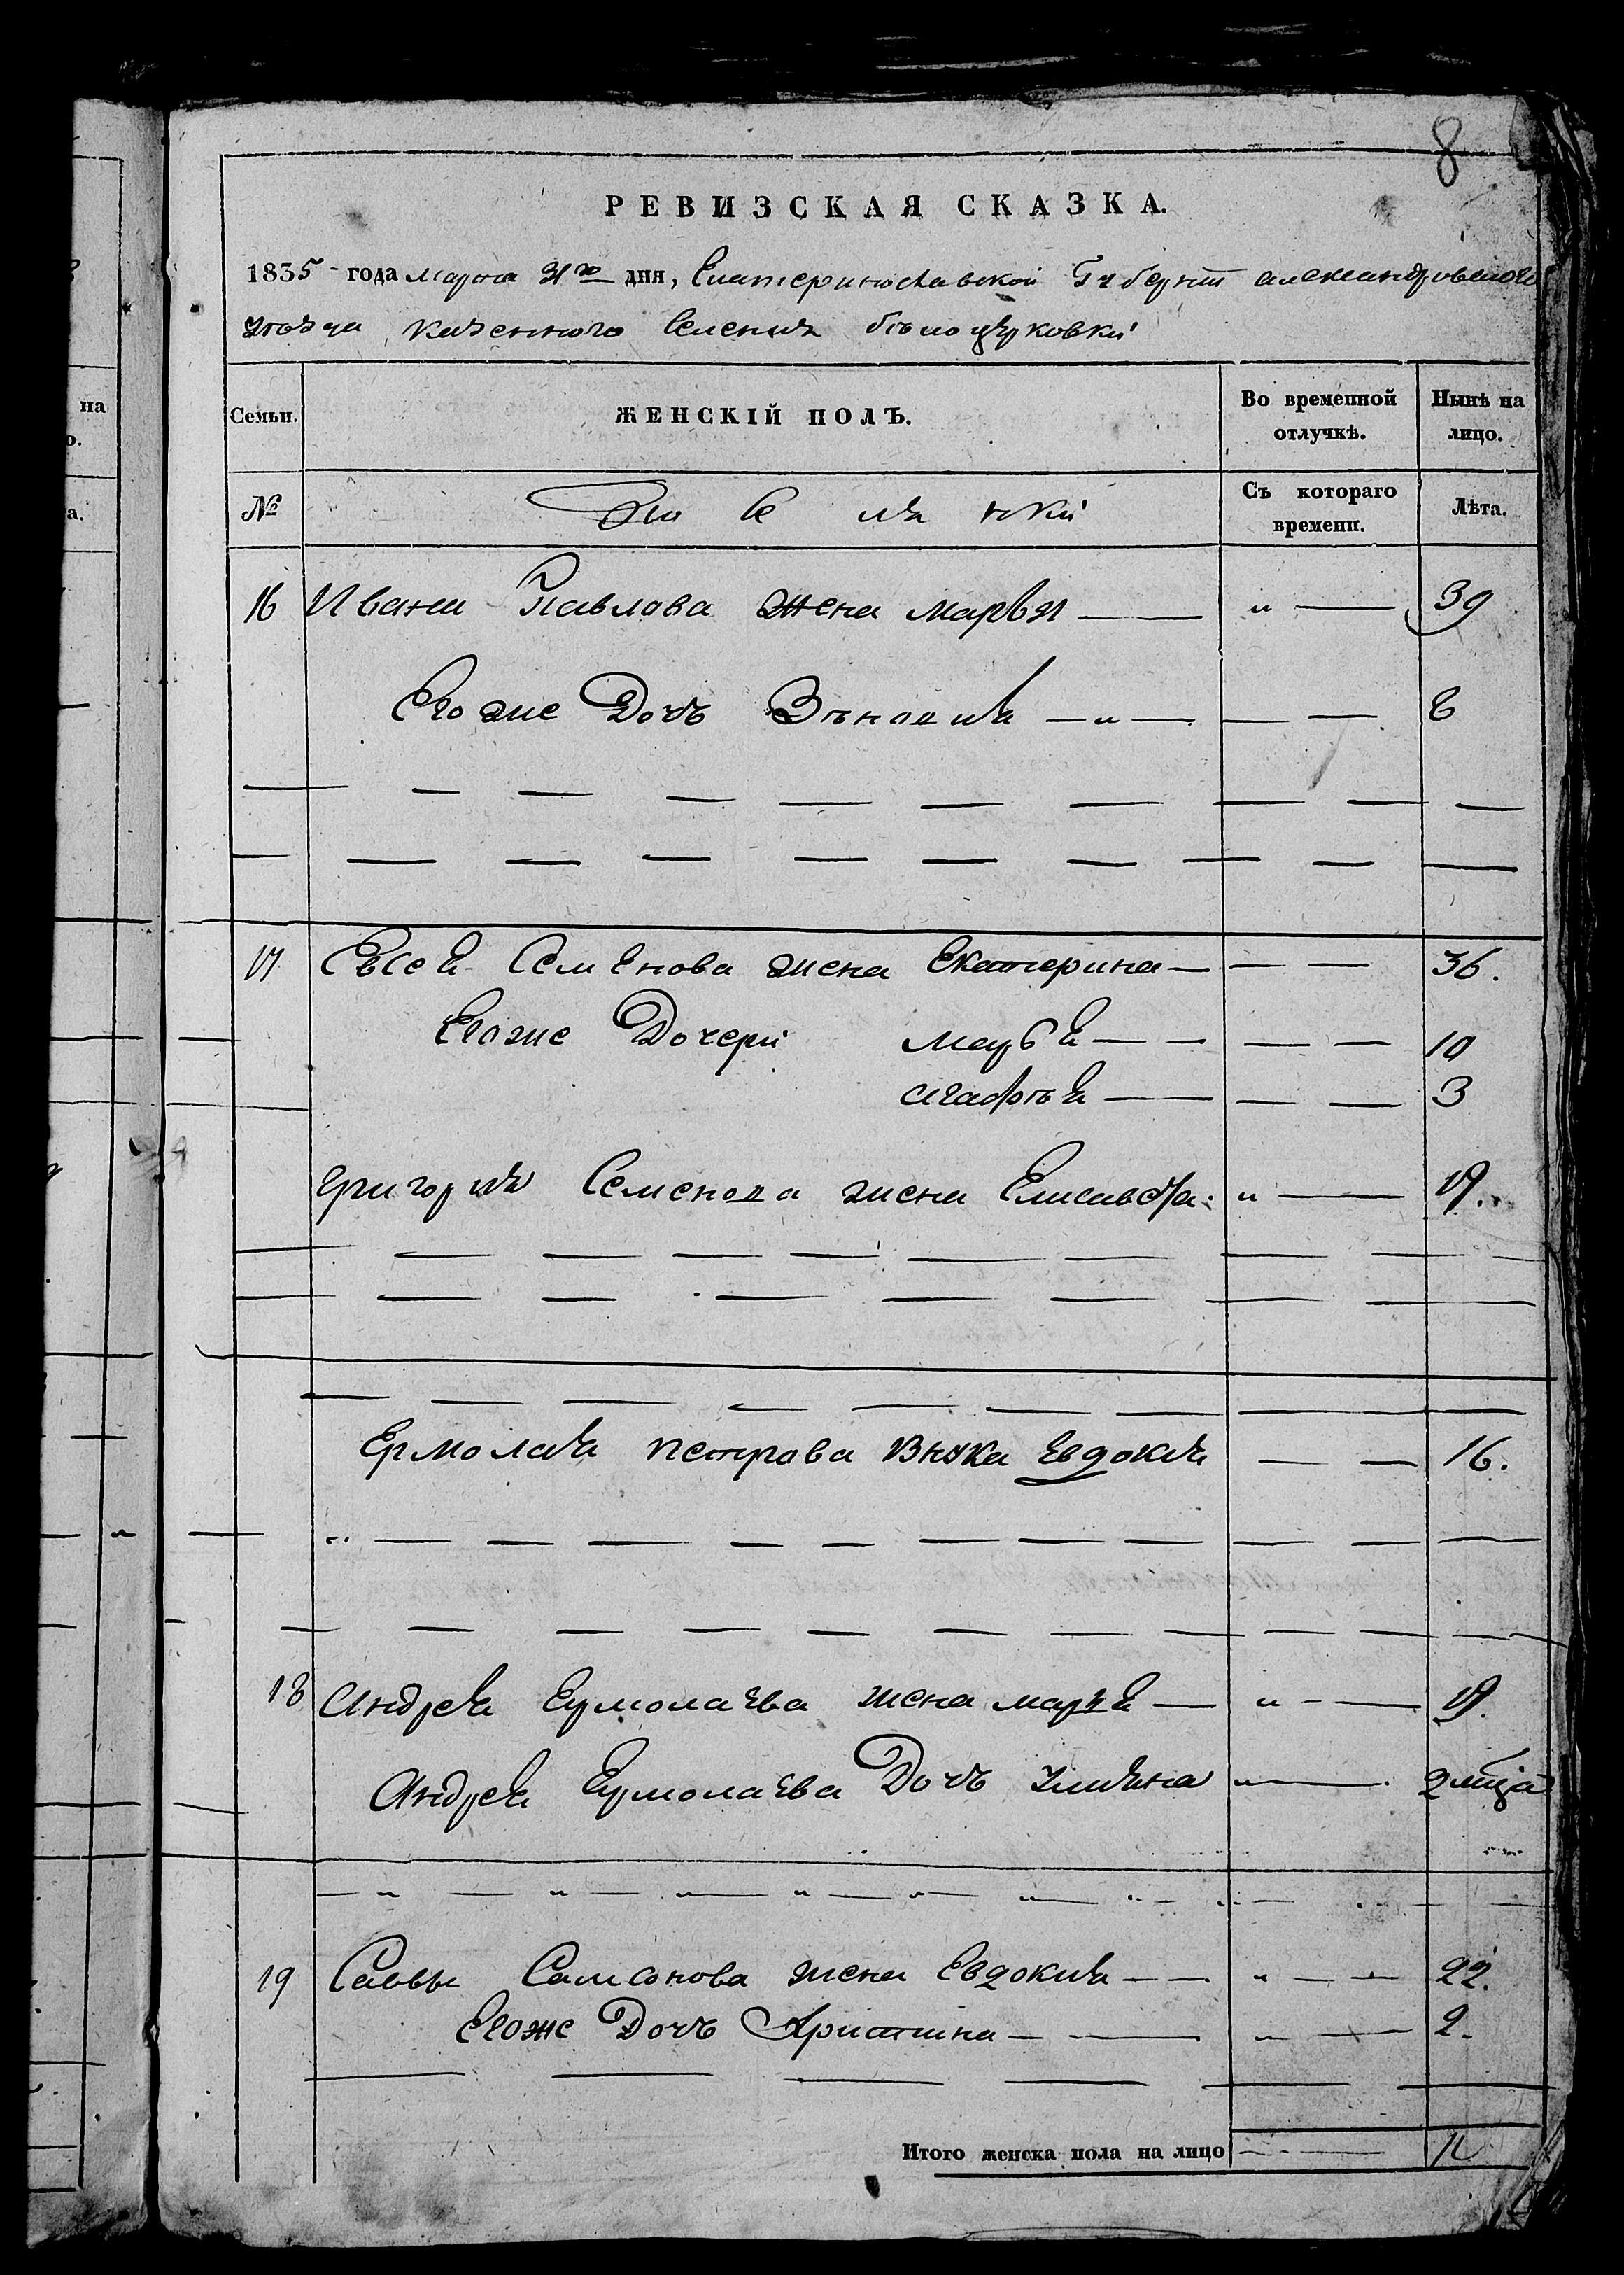 8
РЕВИЗСКАЯ СКАЗКА.
1835 года марта 31го дня, Екатеринославской Губерніи александровскаго
уѣзда казеннаго селенія бѣлоцерковки
на
о.
Семьи. ЖЕНСКІЙ ПОЛЪ. Во временной отлучкѣ. Нынѣ на лицо.
а.
№ Поселянки Съ котораго времени. Лѣта.
16 Ивана Павлова жена марья 39
Егоже Дочь 8
17 Евсея Семенова жена Екатерина 36.
Егоже Дочери 10
агафѣя 3
григорія Семенова жена Елисавета 19.
Ермолая петрова внука Евдокия 16.
18 Андрея Ермолаева жена марья 19.
Андрея Ермолаева Дочь улияна 2 мца
19 Саввы Самсонова жена Евдокия 22.
Егоже Дочь Христина 2.
Итого женска пола на лицо 11